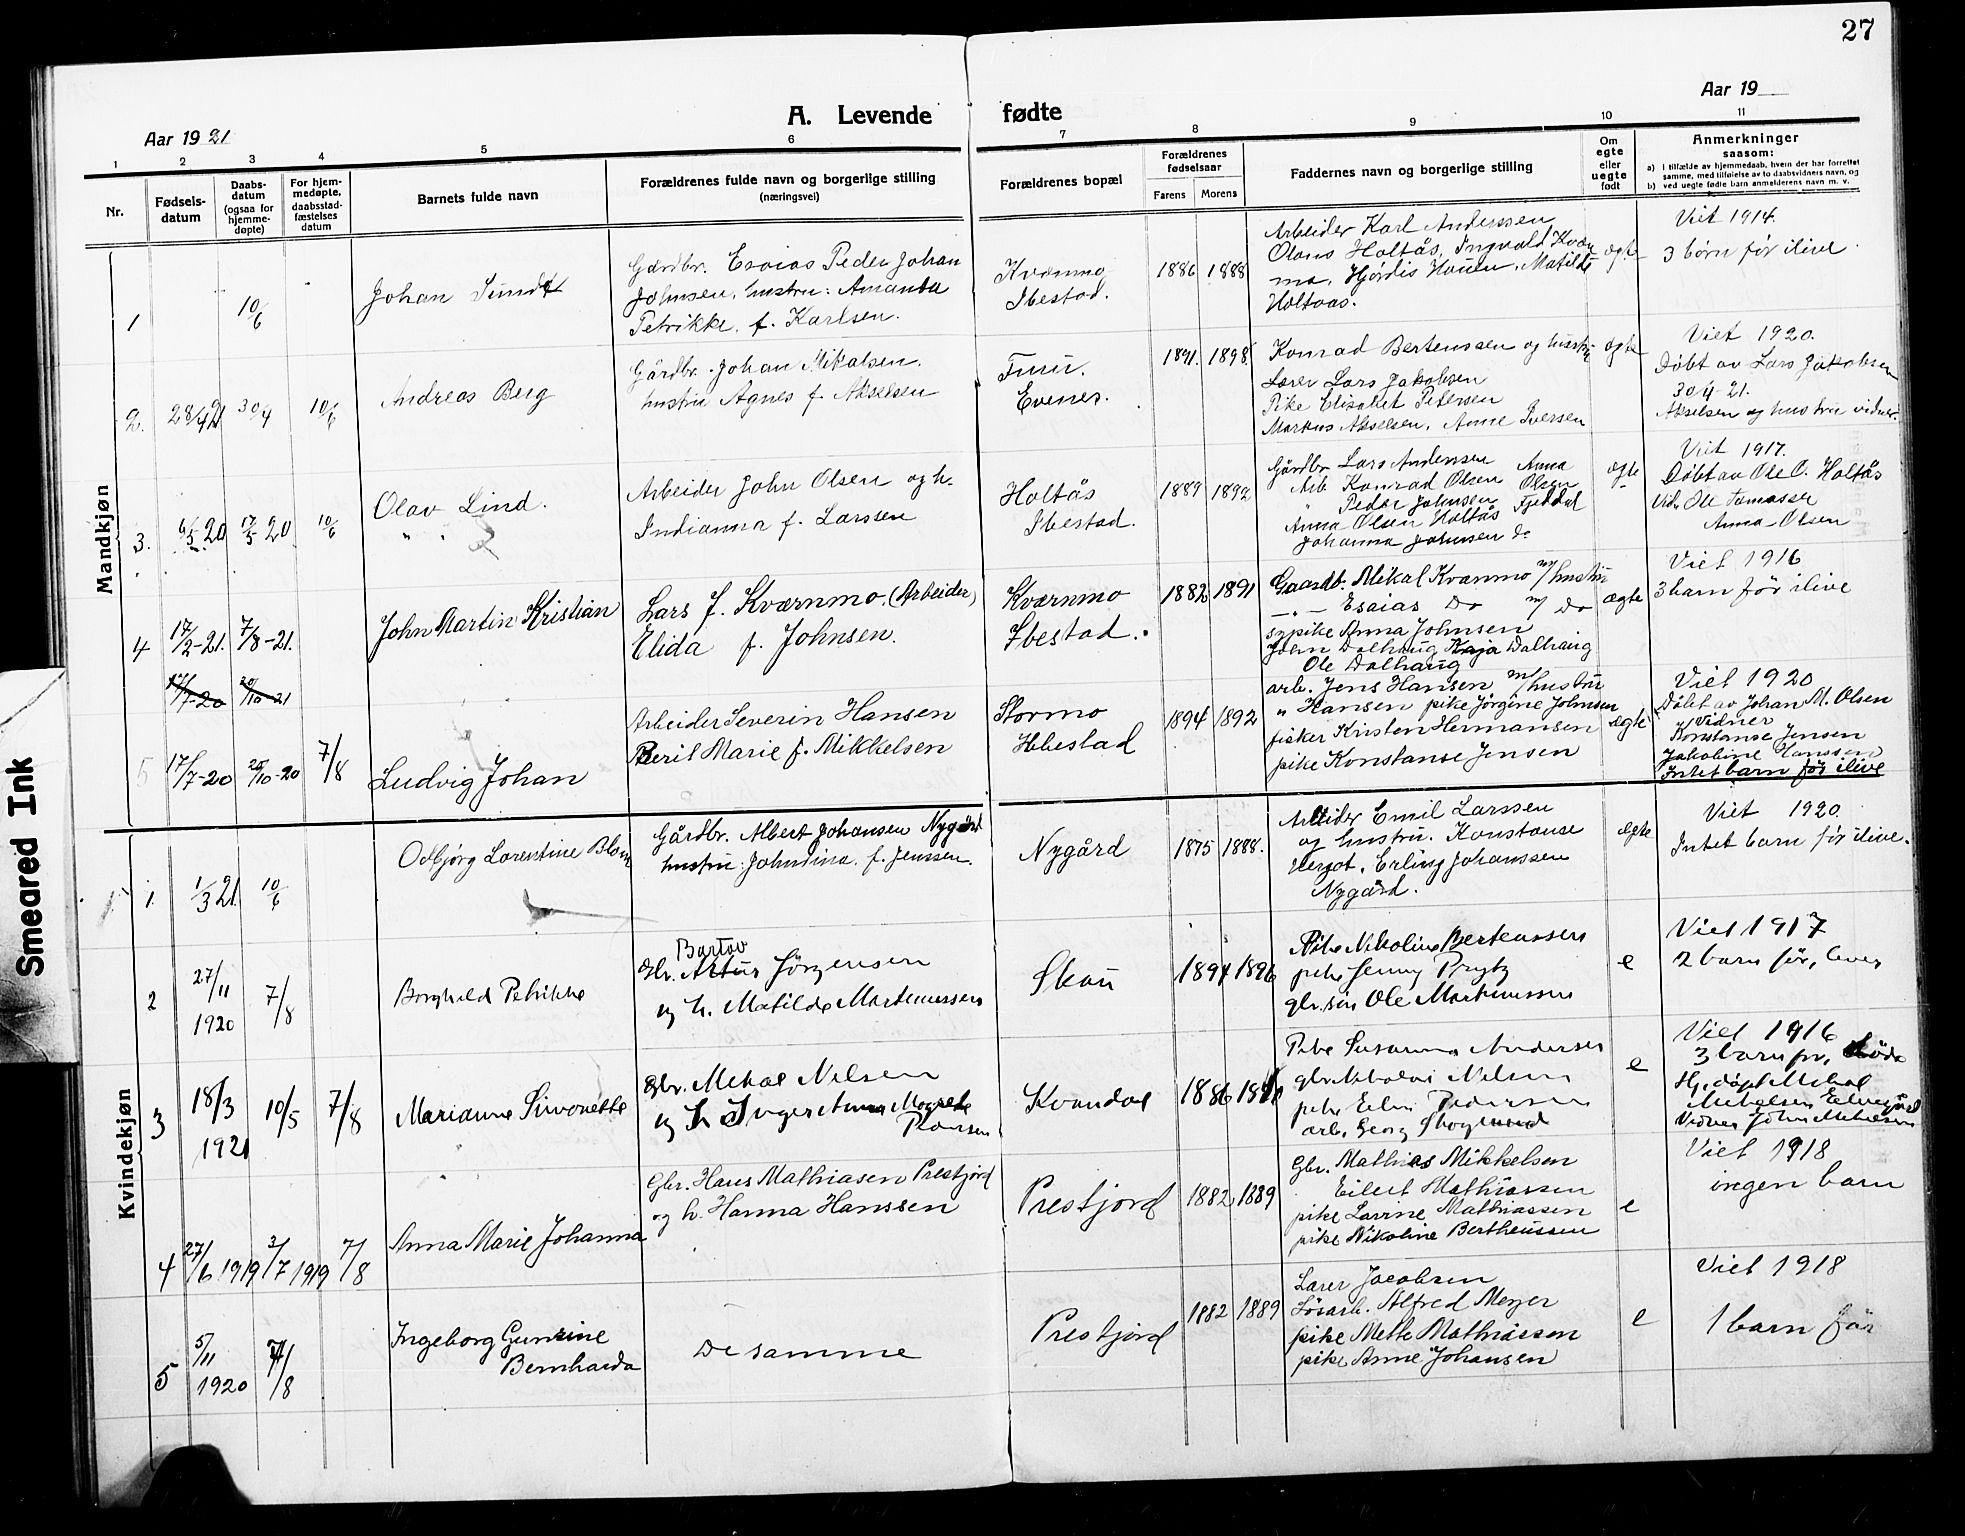 27
Smeared Ink
Aar 1921
A. Levende fødte
Aar 19
1 2 3 4 5 6 7 8 9 10 11
Nr.
Fødsels-
datum
Daabs-
datum
(ogsaa for
hjemme-
døpte)
For hjem-
medøpte,
daabsstad-
fæstelses
datum
Barnets fulde navn
Forældrenes fulde navn og borgerlige stilling
(næringsvei)
Forældrenes bopæl
Forældrenes
fødselsaar
Farens Morens
Faddernes navn og borgerlige stilling
Om
egte
eller
uegte
født
Anmerkninger
saasom:
a) i tilfælde av hjemmedaab, hvem der har forrettet
samme, med tilføielse av to daabsvidners navn, og
b) ved uegte fødte barn anmelderens navn m. v.
Mandkjøn
1
10/6
Johan Sund
Gardbr. Esaias Peder Johan
Johnsen, hustru: Amanda
Petrikke f. Karlsen.
Kvænmo
Ibestad.
1886 1888
Arbeider Karl Anderssen
Olaus Holtås, Ingvald Kvæn
mo, Hjørdis Hauen, Matilde
Holtaas.
ægte
Viet 1914.
3 børn før ilive
2.
28/4 21 30/4 10/6
Andreas Berg
Gårdbr. Johan Mikalsen.
hustru Agnes f. Akselsen
Evenes.
1891. 1898.
Konrad Bertenssen og hustru
Lærer Lars Jakobsen
Pike Elisabet Petersen
Markus Akselsen, Anne Iversen
ægte
Viet 1920.
Døbt av Lars Jakobsen
30/4-21.
Akselsen og hustru vidner.
3.
6/5 20 17/5 20 10/6
Olav Lind.
Arbeider John Olsen og h.
Indianna f. Larssen
Holtås
Ibestad.
1889 1892
Gårdbr Lars Anderssen Anna
Arb Konrad Olsen Olsen
" Peder Johnsen Fjeldal
Anna Olsen Holtås
Johanna Johnsen do
ægte
Viet 1917.
Døbt av Ole O. Holtås
Vidn. Ole Tomasse
Anna Olsen
4
17/2-21. 7/8-21.
John Martin Kristian
Lars J. Kværnmo. (Arbeider)
Elida f. Johnsen.
Kværnmo
Ibestad.
1882 1891
Gaardb. Mikal Kvænmo m/hustru
—"— Esaias Do m/ Do
sypike Anna Johnsen
John Dalhaug Kaja Dalhaug
Ole Dalhaug
ægte
Viet 1916
3 barn før ilive
17/7-20 20/10-21
5
17/7-20 20/10-20 7/8
Ludvig Johan
Arbeider Severin Hansen
Beril Marie f. Mikkelsen
Stormo
Ibestad
1894 1892
arb. Jens Hansen m/hustru
" Hansen pike Jørgine Johnsen
fisker Kristen Hermansen
pike Konstanse Jensen
ægte
Viet 1920
Døbt av Johan M. Olsen
Vidner
Konstanse Jensen
Jakobine Hanssen
Intet barn før ilive
Kvindekjøn
1.
1/3 21. 10/6
Odbjørg Lorentine Blom
Gårdbr. Albert Johansen Nygård
hustru Johndina. f. Jenssen.
Nygård
1875 1888.
Arbeider Emil Larssen
og hustru. Konstanse
Hergot, Erling Johanssen
Nygård.
ægte
Viet 1920.
Intet barn før ilive.
2
27/11
1920
7/8
Borghild Petrikke
Bartov
Gbr. Artur Jörgensen
og h. Matilde Martenussen
Skau
1894 1896
Pike Nikoline Berteussen
pike Jenny Prytz
gbr. sön Ole Martinussen
e
Viet 1917
2 barn før, lever
3
18/3
1921
10/5 7/8
Marianne Simonette
Gbr. Mekal Nilsen
og h Inger Anna Magrete
Kvandal
1886
Pike Susanna Andersen
gbr. Nilsen
pike Pedersen
arb. Georg Skoglund
e
Viet 1916
3 barn før,
Hj. døpt Mekal
Vidner John
4
27/6 1919 3/7 1919 7/8
Anna Marie Johanna
Gbr. Hans Mathiasen Prestjord
og h. Hanna Hanssen
Prestjord
1882 1889
Gbr. Mathias Mikkelsen
Eilert Mathiassen
pike Lavine Mathiassen
pike Nikoline Bertheussen
e
Viet 1918
ingen barn
5
5/11
1920
7/8
Ingeborg Gunsine
Bernharda
De samme
Prestjord
1882 1889
Lærer Jacobsen
Løsarb. Alfred Meyer
pike Mette Mathiassen
pike Anne Johansen
e
Viet 1918
1 barn før